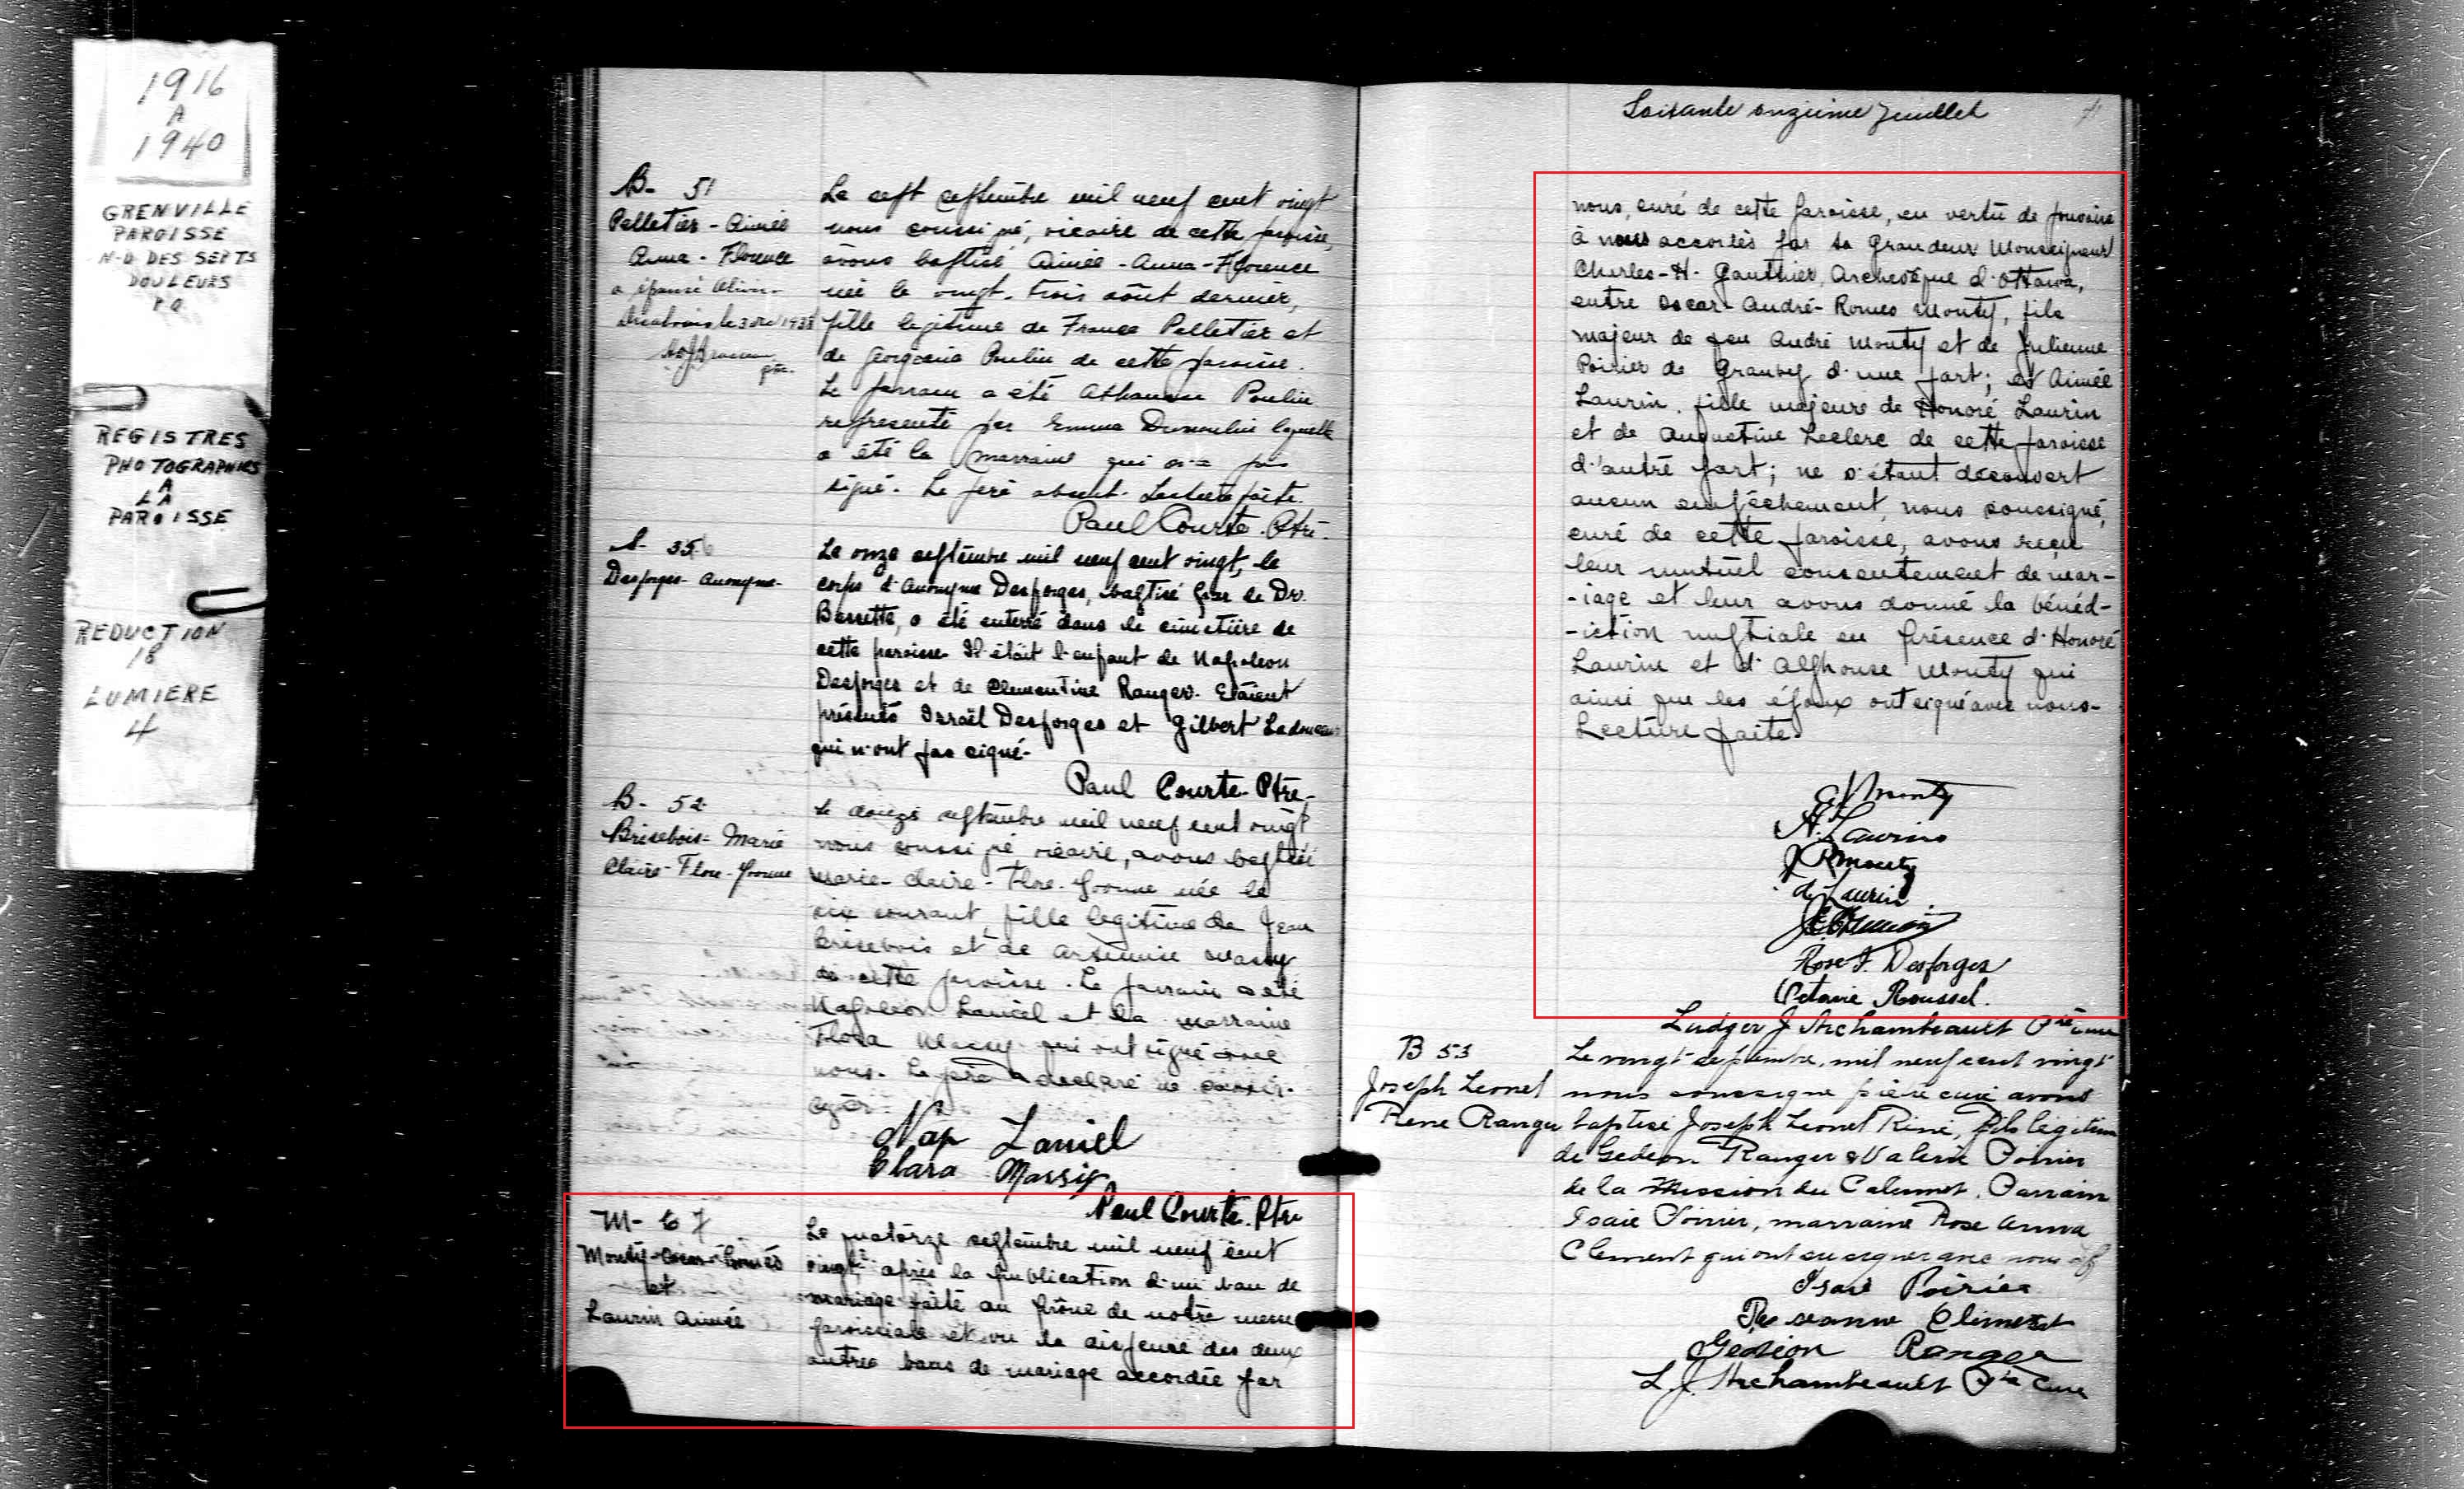 1916
A
1940
GRENVILLE
PAROISSE
N-D DES SEPTS
DOULEURS
P.Q.
REGISTRES
PHOTOGRAPHIES
A
LA
PAROISSE
REDUCTION
18
LUMIERE
4
B- 51
Pelletier - Aimée
Anna - Florence
Le sept septembre mil neuf cent vingt
nous soussigné, vicaire de cette paroisse,
avons baptisé Aimée - Anna - Florence
née le vingt-trois août dernier,
fille legitime de France Pelletier et
de Georgiana Poulin de cette paroisse.
Le parrain a été Athanase Poulin
représenté par Emma Dumoulin laquelle
a été la marraine qui n'a pas
signé. Le père absent. Lecture faite.
Paul Courte. Ptre.
S- 35
Desforges- Anonyme-
Le onze septembre mil neuf cent vingt, le
corps d'Anonyme Desforges, baptisé par le Dr.
Barrette, a été enterré dans le cimetière de
cette paroisse. Il était l'enfant de Napoleon
Desforges et de Clementine Ranger. Etaient
présents Israël Desforges et Gilbert Ladouceur
qui n'ont pas signé-
Paul Courte- Ptre-
B- 52
Brisebois- Marie
Claire- Flore- Yvonne
Le douze septembre mil neuf cent vingt
nous soussigné vicaire, avons baptisé
Marie- Claire- Flore- Yvonne née le
six courant, fille legitime de Jean
Brisebois et de Arzemise Massy
de cette paroisse. Le parrain a été
Napoleon Laniel et la marraine
Flora Massy qui ont signé avec
nous. Le père a déclaré ne savoir
signer-
Nap Laniel
Clara Massy
Paul Courte. Ptre
M- 67
Monty-Oscar-Roméo
et
Laurin Aimée
Le quatorze septembre mil neuf cent
vingt, après la publication d'un ban de
mariage faite au prône de notre messe
paroissiale et vu la dispense des deux
autres bans de mariage accordée par
Soixante onzième feuillet
nous, curé de cette paroisse, en vertu de pouvoirs
à nous accordés par Sa Grandeur Monseigneur
Charles-H- Gauthier, Archevêque d'Ottawa,
entre Oscar- André- Romeo Monty, fils
majeur de feu André Monty et de Julienne
Poirier de Granby d'une part; et Aimée
Laurin, fille majeure de Honoré Laurin
et de Augustine Leclerc de cette paroisse
d'autre part; ne s'étant découvert
aucun empêchement, nous soussigné,
curé de cette paroisse, avons reçu
leur mutuel consentement de mar-
-iage et leur avons donné la bénéd-
-iction nuptiale en présence d'Honoré
Laurin et d'Alphonse Monty qui
ainsi que les époux ont signé avec nous-
Lecture faite.
A Monty
H. Laurin
J R Monty
A. Laurin
Rose I. Desforges
Octavie Roussel.
Ludger J Archambeault Ptre curé
B 53
Joseph Leonel
Rene Ranger
Le vingt septembre, mil neuf cent vingt
nous soussigné prêtre curé avons
baptisé Joseph Leonel René, fils légitime
de Gedeon Ranger & Valerie Poirier
de la Mission du Calumet. Parrain
Isaie Poirier, marraine Rose Anna
Clement qui ont su signer avec nous lf
Isaie Poirier
Roseanna Clement
Gedeon Ranger
L. J. Archambeault Ptre Curé